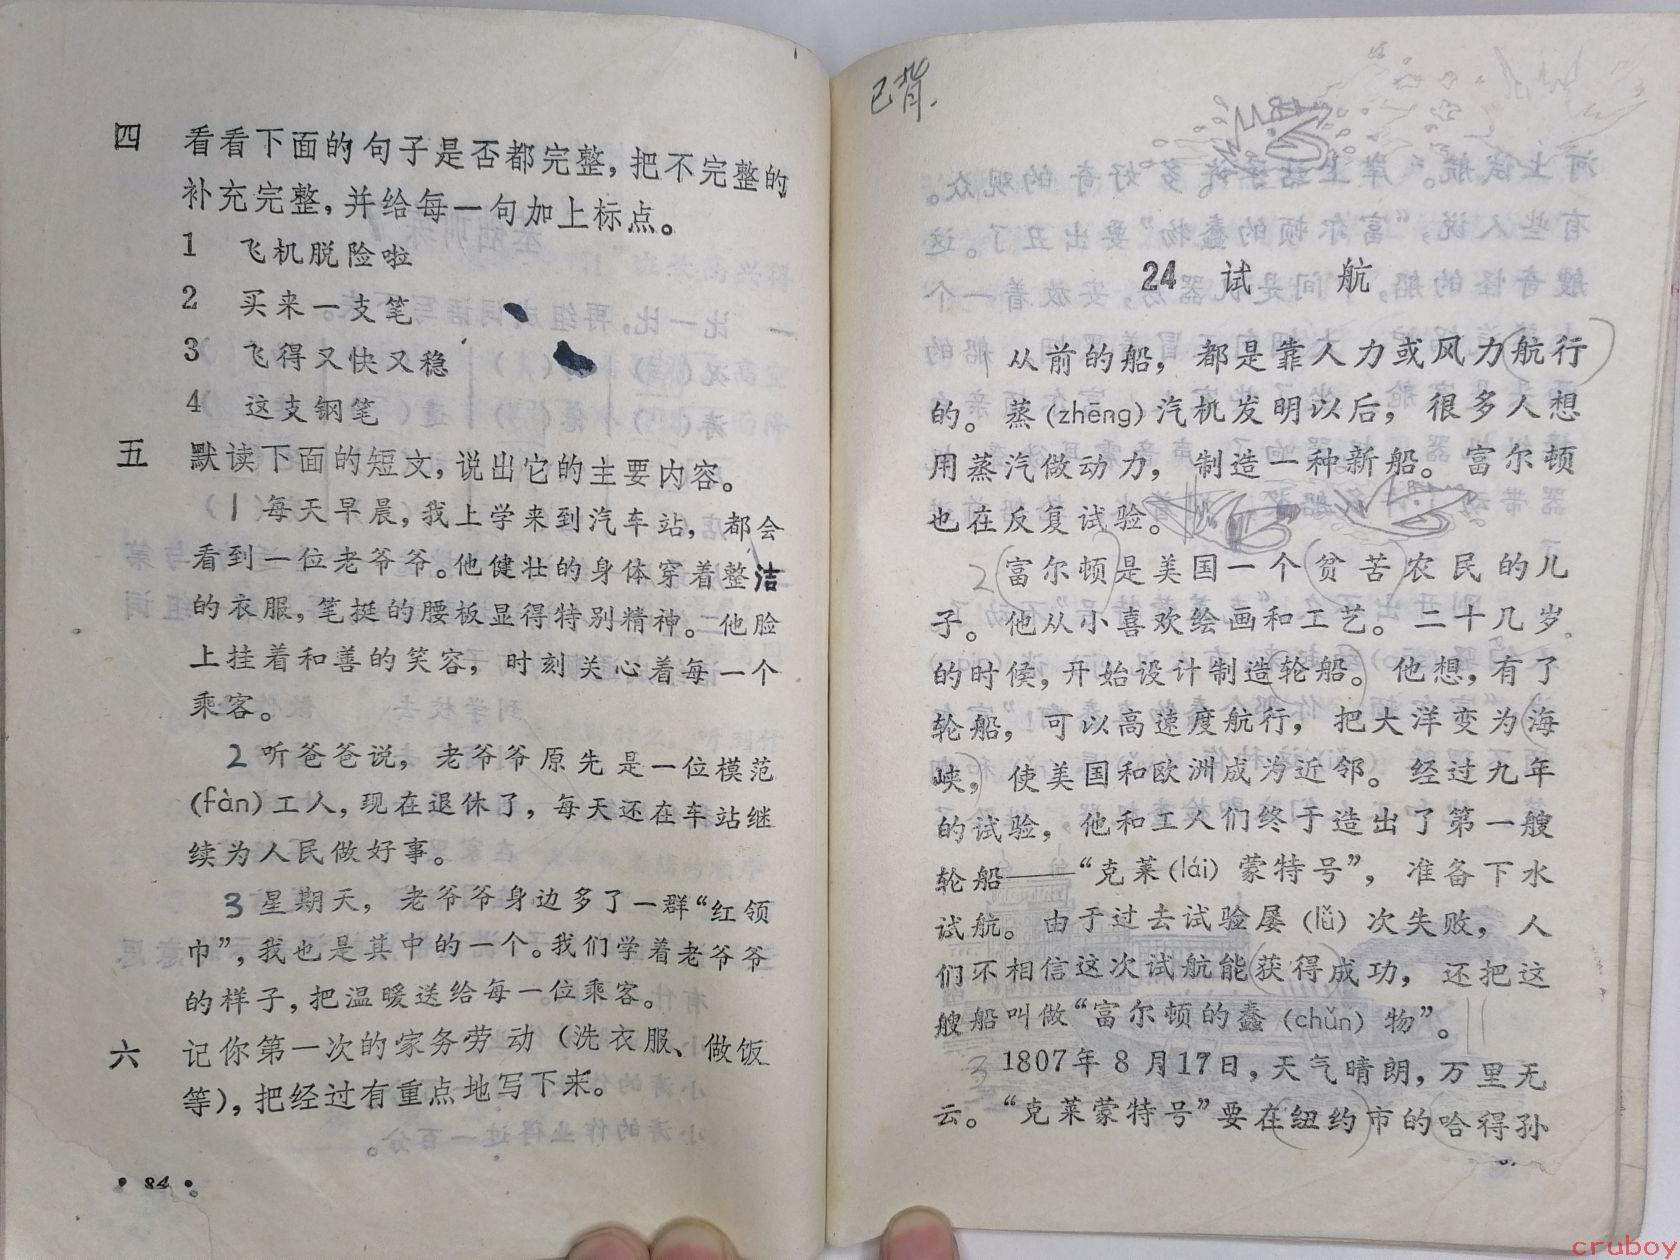 四 看看下面的句子是否都完整，把不完整的
补充完整，并给每一句加上标点。
1 飞机脱险啦
2 买来一支笔
3 飞得又快又稳
4 这支钢笔
五 默读下面的短文，说出它的主要内容。
1 每天早晨，我上学来到汽车站，都会
看到一位老爷爷。他健壮的身体穿着整洁
的衣服，笔挺的腰板显得特别精神。他脸
上挂着和善的笑容，时刻关心着每一个
乘客。
2 听爸爸说，老爷爷原先是一位模范
(fàn)工人，现在退休了，每天还在车站继
续为人民做好事。
3 星期天，老爷爷身边多了一群“红领
巾”，我也是其中的一个。我们学着老爷爷
的样子，把温暖送给每一位乘客。
六 记你第一次的家务劳动（洗衣服、做饭
等），把经过有重点地写下来。
• 84 •
已背.
24 试 航
从前的船，都是靠人力或风力航行
的。蒸(zhēng)汽机发明以后，很多人想
用蒸汽做动力，制造一种新船。富尔顿
也在反复试验。
2 富尔顿是美国一个贫苦农民的儿
子。他从小喜欢绘画和工艺。二十几岁
的时候，开始设计制造轮船。他想，有了
轮船，可以高速度航行，把大洋变为海
峡，使美国和欧洲成为近邻。经过九年
的试验，他和工人们终于造出了第一艘
轮船——“克莱(lái)蒙特号”，准备下水
试航。由于过去试验屡(lǚ)次失败，人
们不相信这次试航能获得成功，还把这
艘船叫做“富尔顿的蠢(chǔn)物”。
3 1807年8月17日，天气晴朗，万里无
云。“克莱蒙特号”要在纽约市的哈得孙
cruboy